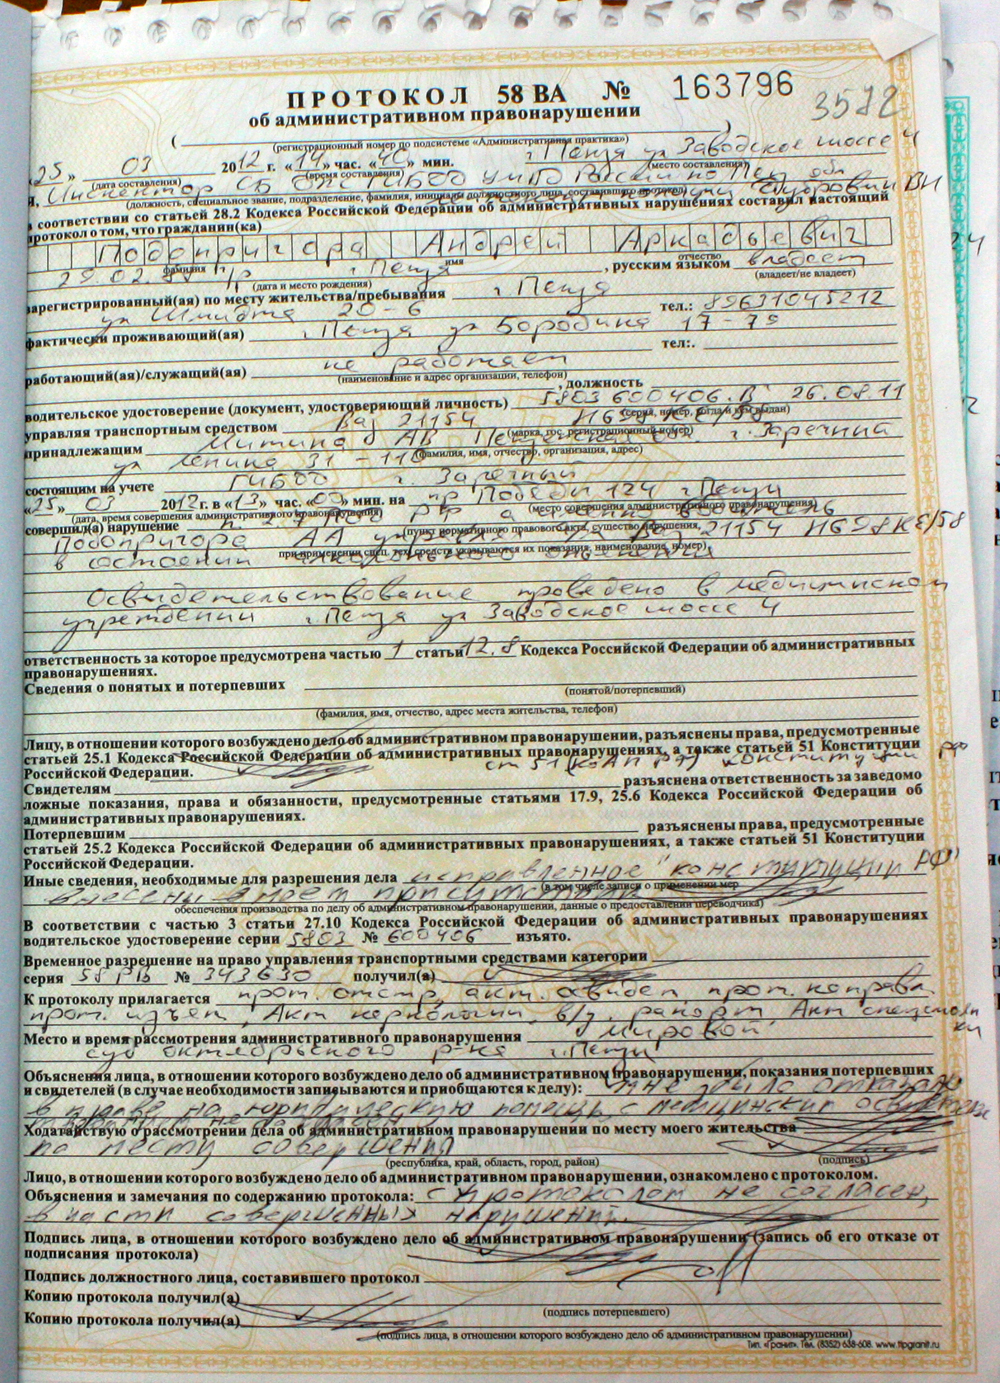 ПРОТОКОЛ 58 ВА № 163796
3572
об административном правонарушении
(регистрационный номер по подсистеме «Административная практика»)
«25» 03 2012 г. «14» час. «40» мин. г Пенза ул Заводское шоссе 4
(дата составления) (время составления) (место составления)
Я, Инспектор СБ ДПС ГИБДД УМВД России по Пенз обл
(должность, специальное звание, подразделение, фамилия, инициалы должностного лица, составившего протокол)
в соответствии со статьей 28.2 Кодекса Российской Федерации об административных нарушениях составил настоящий
протокол о том, что гражданин(ка)
Подопригора Андрей Аркадьевич
фамилия имя отчество
29.02 г Пенза , русским языком владеет
(дата и место рождения) (владеет/не владеет)
зарегистрированный(ая) по месту жительства/пребывания г Пенза
ул Шмидта 20-6 тел.: 89631045212
фактически проживающий(ая) г. Пенза ул Бородина 17-79
тел:.
работающий(ая)/служащий(ая) не работает
(наименование и адрес организации, телефон)
, должность
водительское удостоверение (документ, удостоверяющий личность) 5803 600406. В 26.08.11
(серия, номер, когда и кем выдан)
управляя транспортным средством Ваз 21154 Н698КЕ/58
(марка, гос. регистрационный номер)
принадлежащим Митина АВ Пензенская обл. г. Заречный
(фамилия, имя, отчество, организация, адрес)
ул Ленина 31 - 110
состоящим на учете ГИБДД г. Заречный
«25» 03 2012 г. в «13» час. «00» мин. на пр Победы 124 г Пенза
(дата, время совершения административного правонарушения) (место совершения административного правонарушения)
совершил(а) нарушение п. 2.7 ПДД РФ
(пункт нормативного правового акта, существо нарушения,
Подопригора АА Ваз 21154 Н698КЕ/58
при применении спец. тех. средств указываются их показания, наименование, номер)
в состоянии алкогольного опьянения
Освидетельствование проведено в медицинском
учреждении г. Пенза ул Заводское шоссе 4
ответственность за которое предусмотрена частью 1 статьи 12.8 Кодекса Российской Федерации об административных
правонарушениях.
Сведения о понятых и потерпевших
(понятой/потерпевший)
(фамилия, имя, отчество, адрес места жительства, телефон)
Лицу, в отношении которого возбуждено дело об административном правонарушении, разъяснены права, предусмотренные
статьей 25.1 Кодекса Российской Федерации об административных правонарушениях, а также статьей 51 Конституции
Российской Федерации. ст 51 (КоАП РФ) конституции РФ
Свидетелям разъяснена ответственность за заведомо
ложные показания, права и обязанности, предусмотренные статьями 17.9, 25.6 Кодекса Российской Федерации об
административных правонарушениях.
Потерпевшим разъяснены права, предусмотренные
статьей 25.2 Кодекса Российской Федерации об административных правонарушениях, а также статьей 51 Конституции
Российской Федерации.
Иные сведения, необходимые для разрешения дела исправленное "конституции РФ"
(в том числе записи о применении мер
внесены в моем присутствии
обеспечения производства по делу об административном правонарушении, данные о предоставлении переводчика)
В соответствии с частью 3 статьи 27.10 Кодекса Российской Федерации об административных правонарушениях
водительское удостоверение серии 5803 № 600406 изъято.
Временное разрешение на право управления транспортными средствами категории
серия 58 РВ № 343630 получил(а)
К протоколу прилагается прот. отстр, акт. освидет, прот. направл.
прот. изъят, Акт наркологии, в/у, рапорт, Акт спецстоянки
Место и время рассмотрения административного правонарушения Мировой
суд октябрьского р-на г. Пензы
Объяснения лица, в отношении которого возбуждено дело об административном правонарушении, показания потерпевших
и свидетелей (в случае необходимости записываются и приобщаются к делу): мне было отказано
в праве на юридическую помощь, с медицинским
Ходатайствую о рассмотрении дела об административном правонарушении по месту моего жительства
по месту совершения
(республика, край, область, город, район) (подпись)
Лицо, в отношении которого возбуждено дело об административном правонарушении, ознакомлено с протоколом.
Объяснения и замечания по содержанию протокола: с протоколом не согласен,
в части совершенных нарушений.
Подпись лица, в отношении которого возбуждено дело об административном правонарушении (запись об его отказе от
подписания протокола)
Подпись должностного лица, составившего протокол
Копию протокола получил(а)
(подпись потерпевшего)
Копию протокола получил(а)
(подпись лица, в отношении которого возбуждено дело об административном правонарушении)
Тип. «Гранит». Тел. (8352) 638-608. www.tipgranit.ru